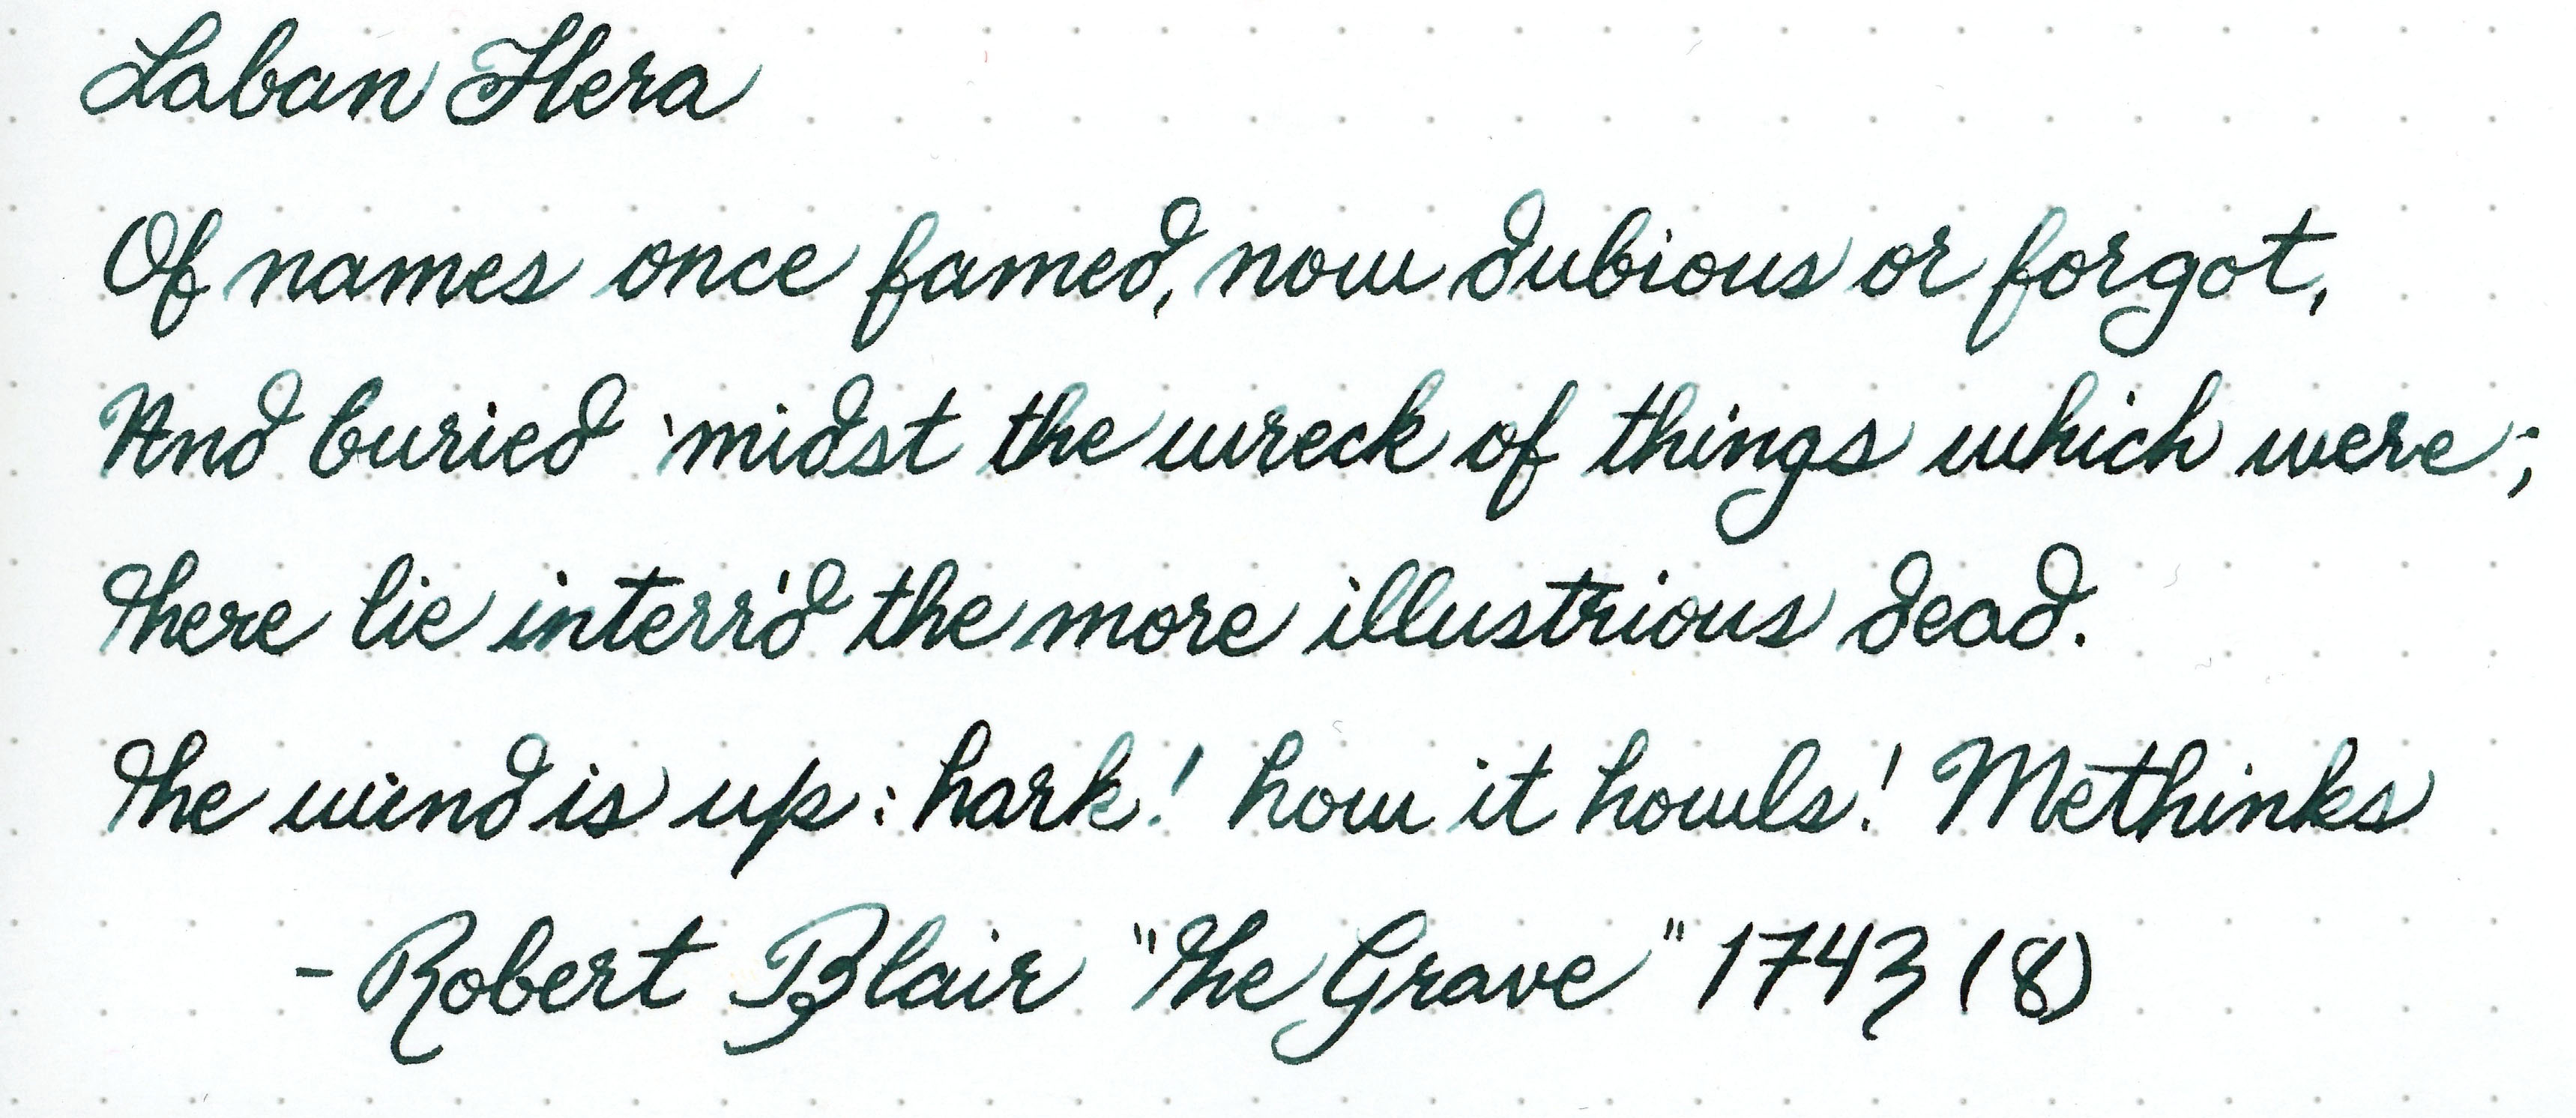 Laban Hera
Of names once famed, now dubious or forgot,
And buried 'midst the wreck of things which were;
There lie interr'd the more illustrious dead.
The wind is up: hark! how it howls! Methinks
- Robert Blair "The Grave" 1743 (8)